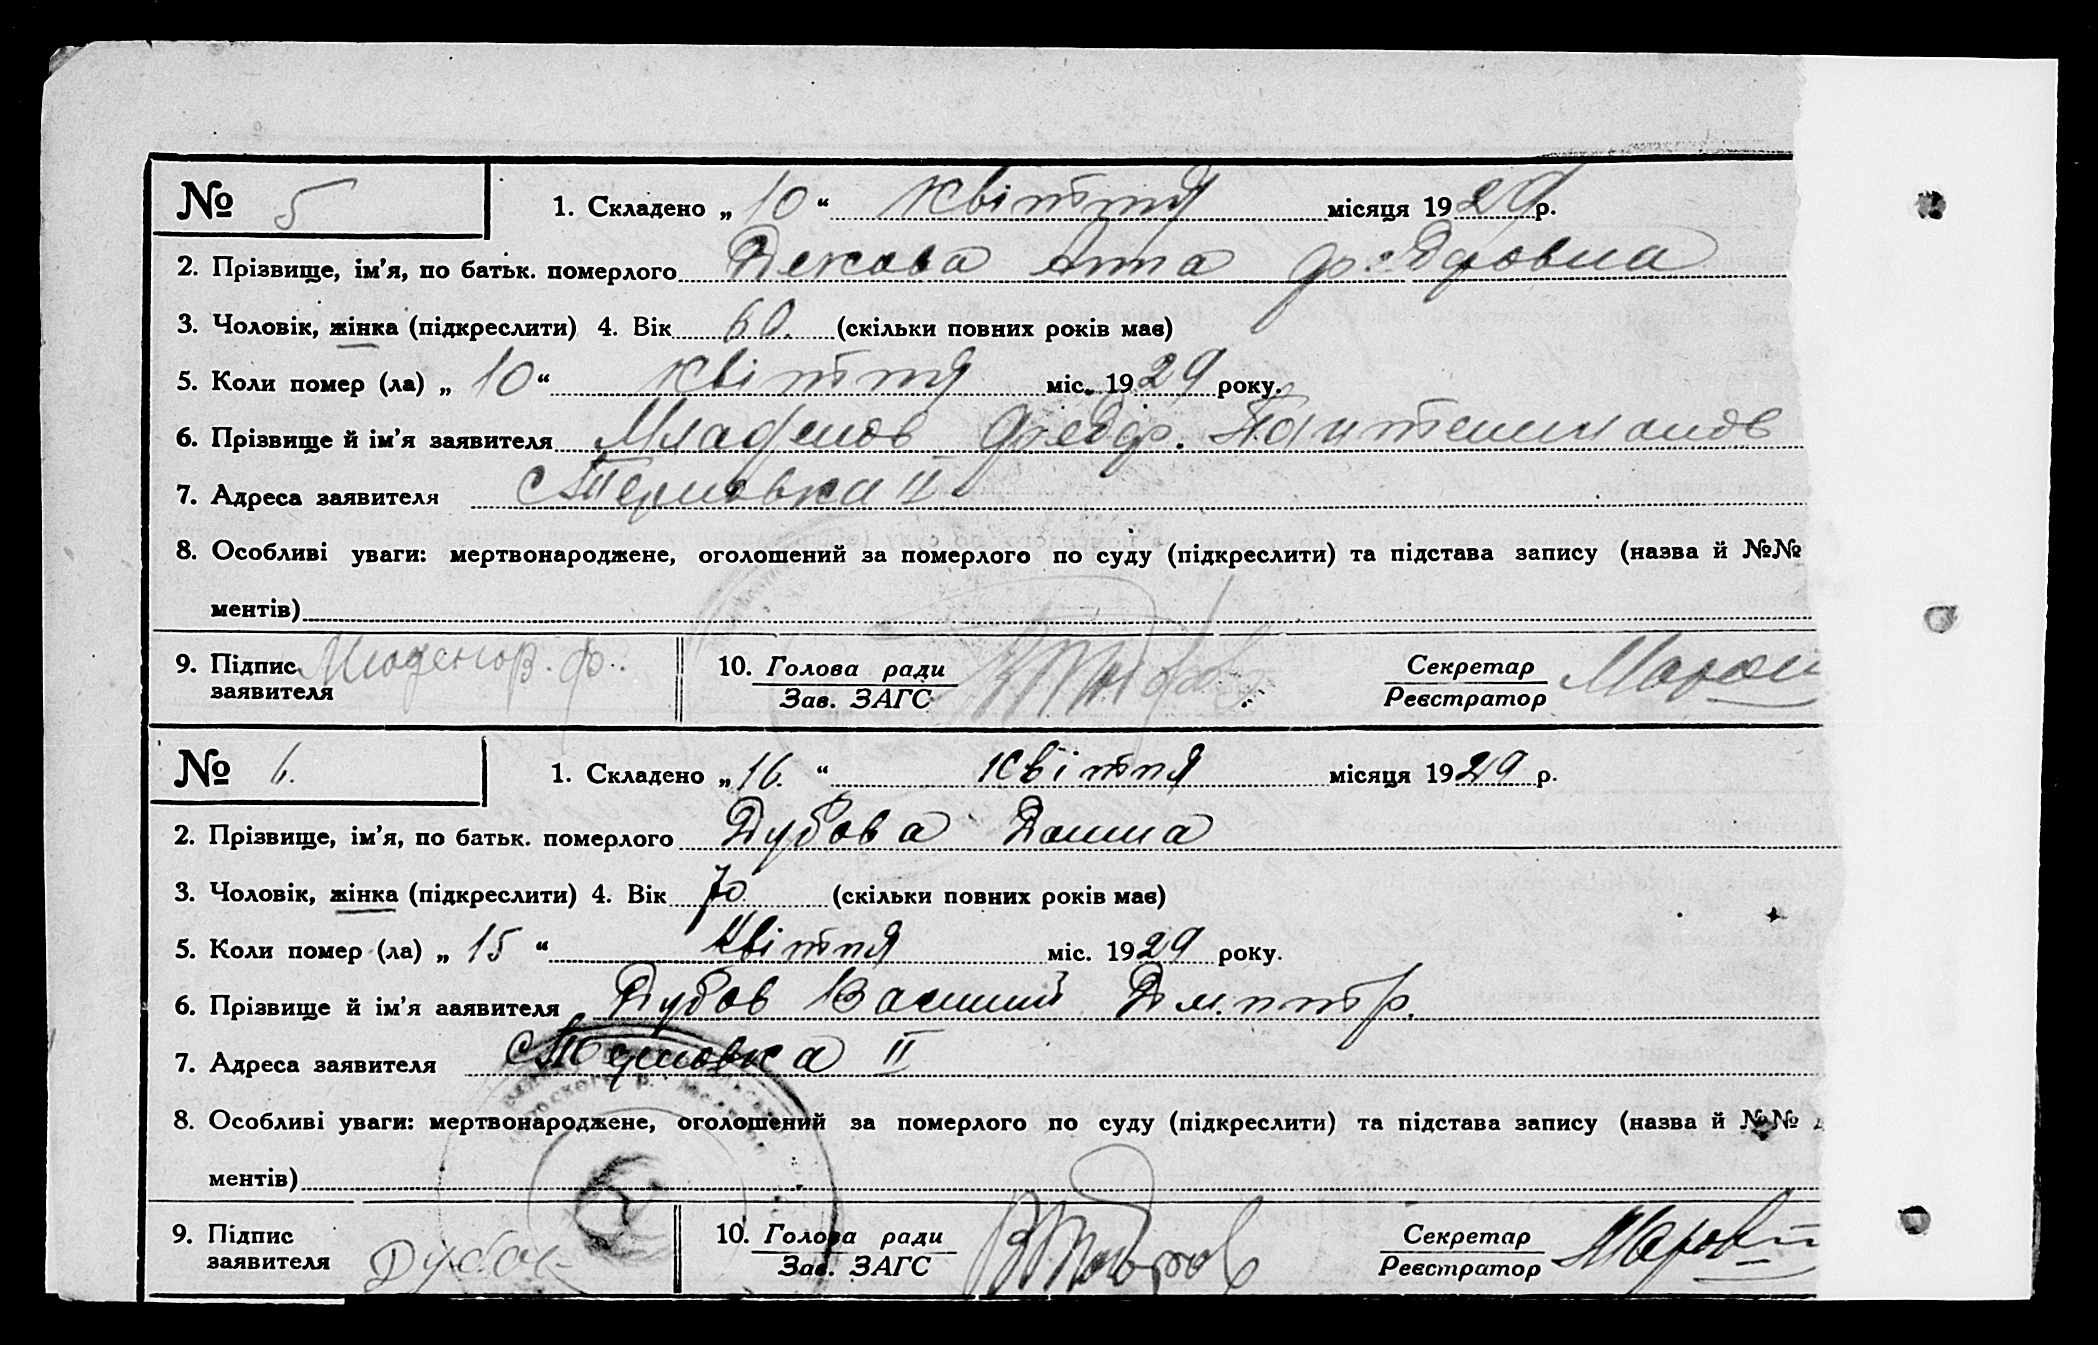 № 5
1. Складено „ 10 “ квітня місяця 1929 р.
2. Прізвище, ім’я, по батьк. померлого Декова Анна Федоровна
3. Чоловік, жінка (підкреслити) 4. Вік 60. (скільки повних років має)
5. Коли помер (ла) „ 10 “ квітня міс. 1929 року.
6. Прізвище й ім’я заявителя Младенов Федор.
7. Адреса заявителя с Терновка II
8. Особливі уваги: мертвонароджене, оголошений за померлого по суду (підкреслити) та підстава запису (назва й №№
ментів)
9. Підпис заявителя Младенов. Ф.
10. Голова ради
Зав. ЗАГС
Секретар
Реєстратор
№ 6.
1. Складено „ 16. “ квітня місяця 1929 р.
2. Прізвище, ім’я, по батьк. померлого Дубова Домна
3. Чоловік, жінка (підкреслити) 4. Вік 70 (скільки повних років має)
5. Коли помер (ла) „ 15 “ квітня міс. 1929 року.
6. Прізвище й ім’я заявителя Дубов Василий Дмитр.
7. Адреса заявителя с Терновка II
8. Особливі уваги: мертвонароджене, оголошений за померлого по суду (підкреслити) та підстава запису (назва й №№
ментів)
9. Підпис заявителя Дубов
10. Голова ради
Зав. ЗАГС
Секретар
Реєстратор